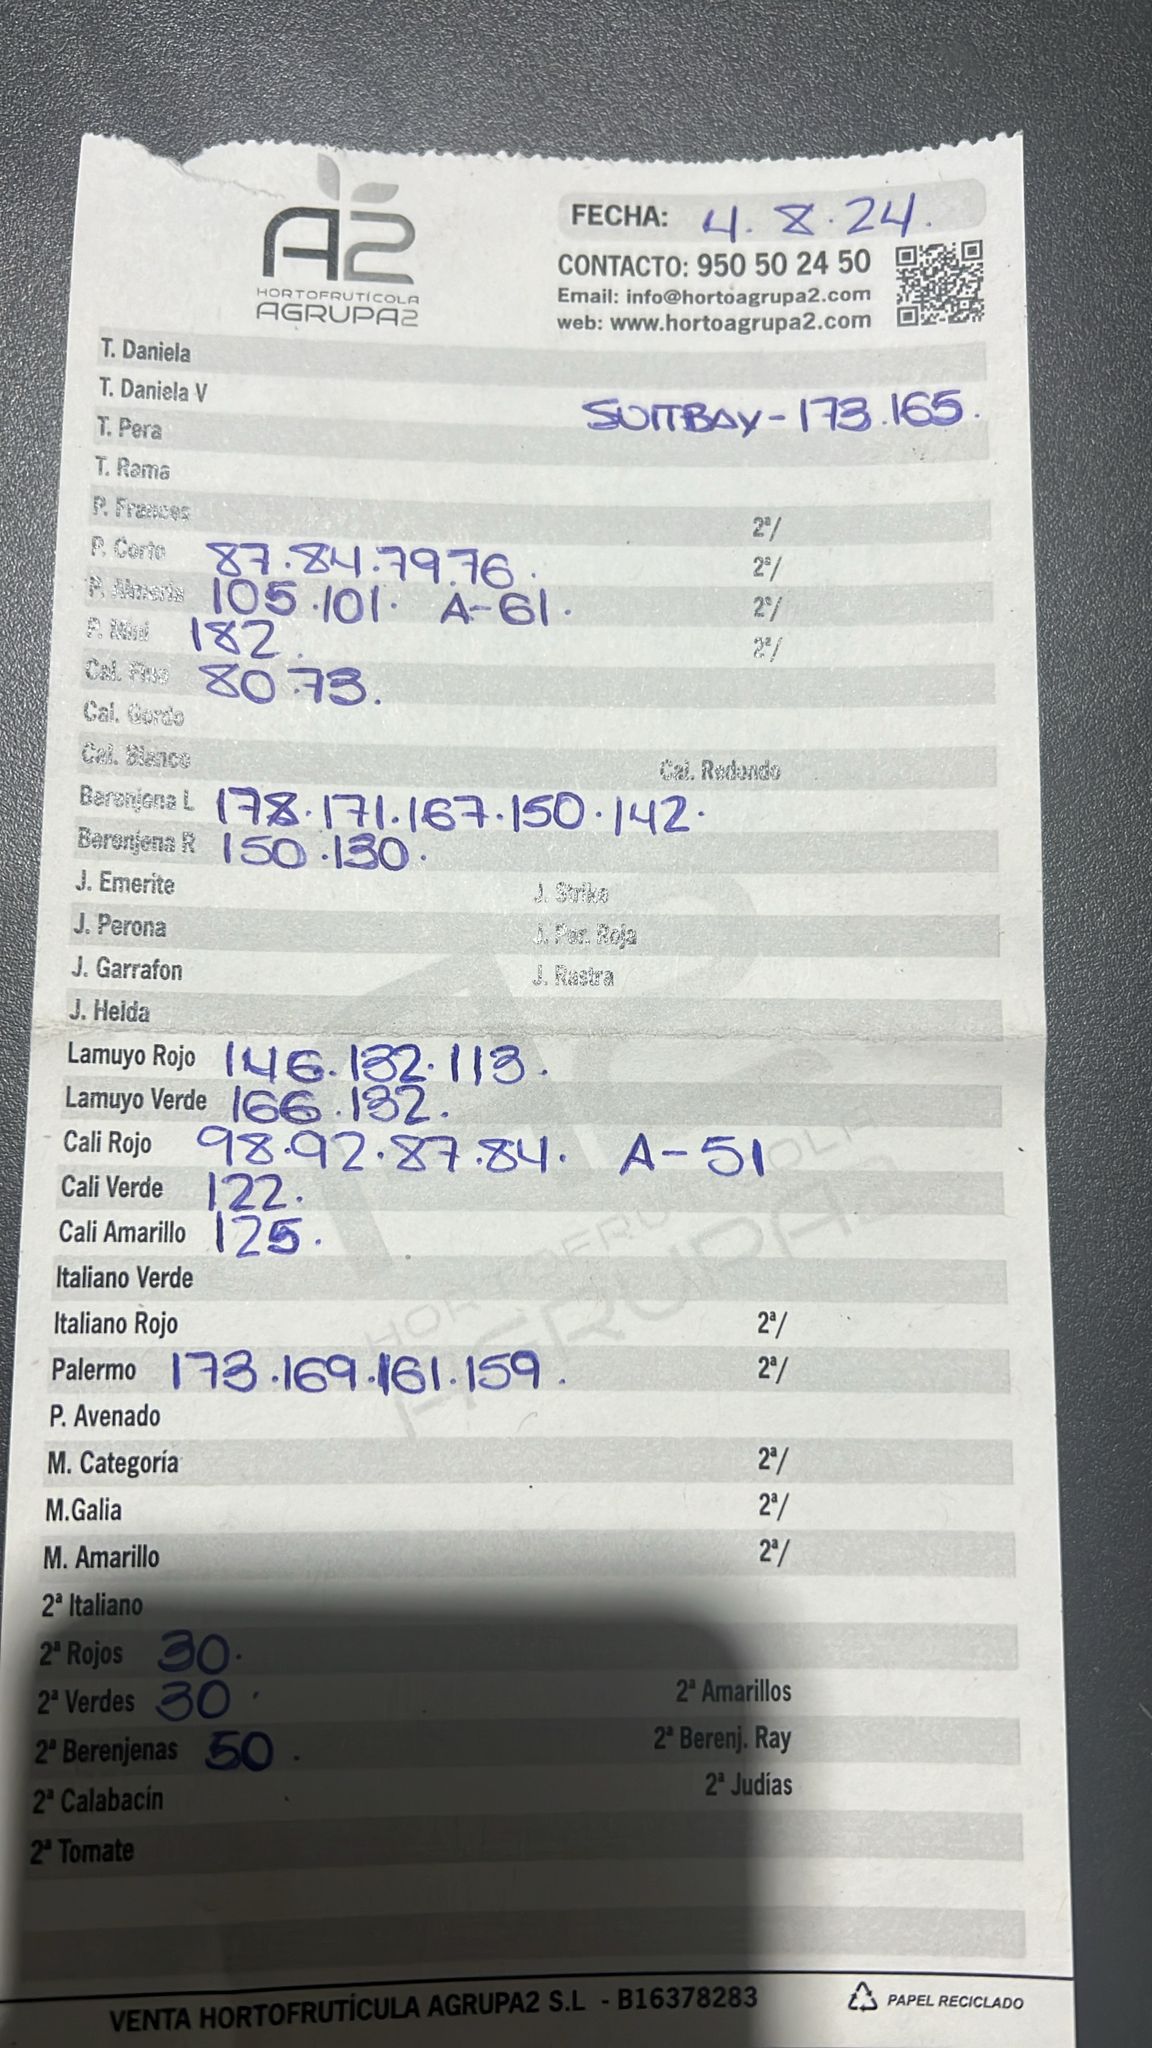 A2
HORTOFRUTÍCOLA
AGRUPA2
FECHA: 4.8.24.
CONTACTO: 950 50 24 50
Email: info@hortoagrupa2.com
web: www.hortoagrupa2.com
T. Daniela
T. Daniela V
SUITBAY-173.165.
T. Pera
T. Rama
P. Frances 2ª/
P. Corto 87.84.79.76. 2ª/
P. Almería 105.101. A-61. 2ª/
P. Mini 182. 2ª/
Cal. Fino 80.73.
Cal. Gordo
Cal. Blanco Cal. Redondo
Berenjena L 178.171.167.150.142.
Berenjena R 150.130.
J. Emerite J. Strike
J. Perona J. Per. Roja
J. Garrafon J. Rastra
J. Helda
Lamuyo Rojo 146.132.113.
Lamuyo Verde 166.132.
Cali Rojo 98.92.87.84. A-51
Cali Verde 122.
Cali Amarillo 125.
Italiano Verde
Italiano Rojo 2ª/
Palermo 173.169.161.159. 2ª/
P. Avenado
M. Categoría 2ª/
M.Galia 2ª/
M. Amarillo 2ª/
2ª Italiano
2ª Rojos 30.
2ª Verdes 30. 2ª Amarillos
2ª Berenjenas 50. 2ª Berenj. Ray
2ª Calabacín 2ª Judías
2ª Tomate
VENTA HORTOFRUTÍCULA AGRUPA2 S.L - B16378283 PAPEL RECICLADO